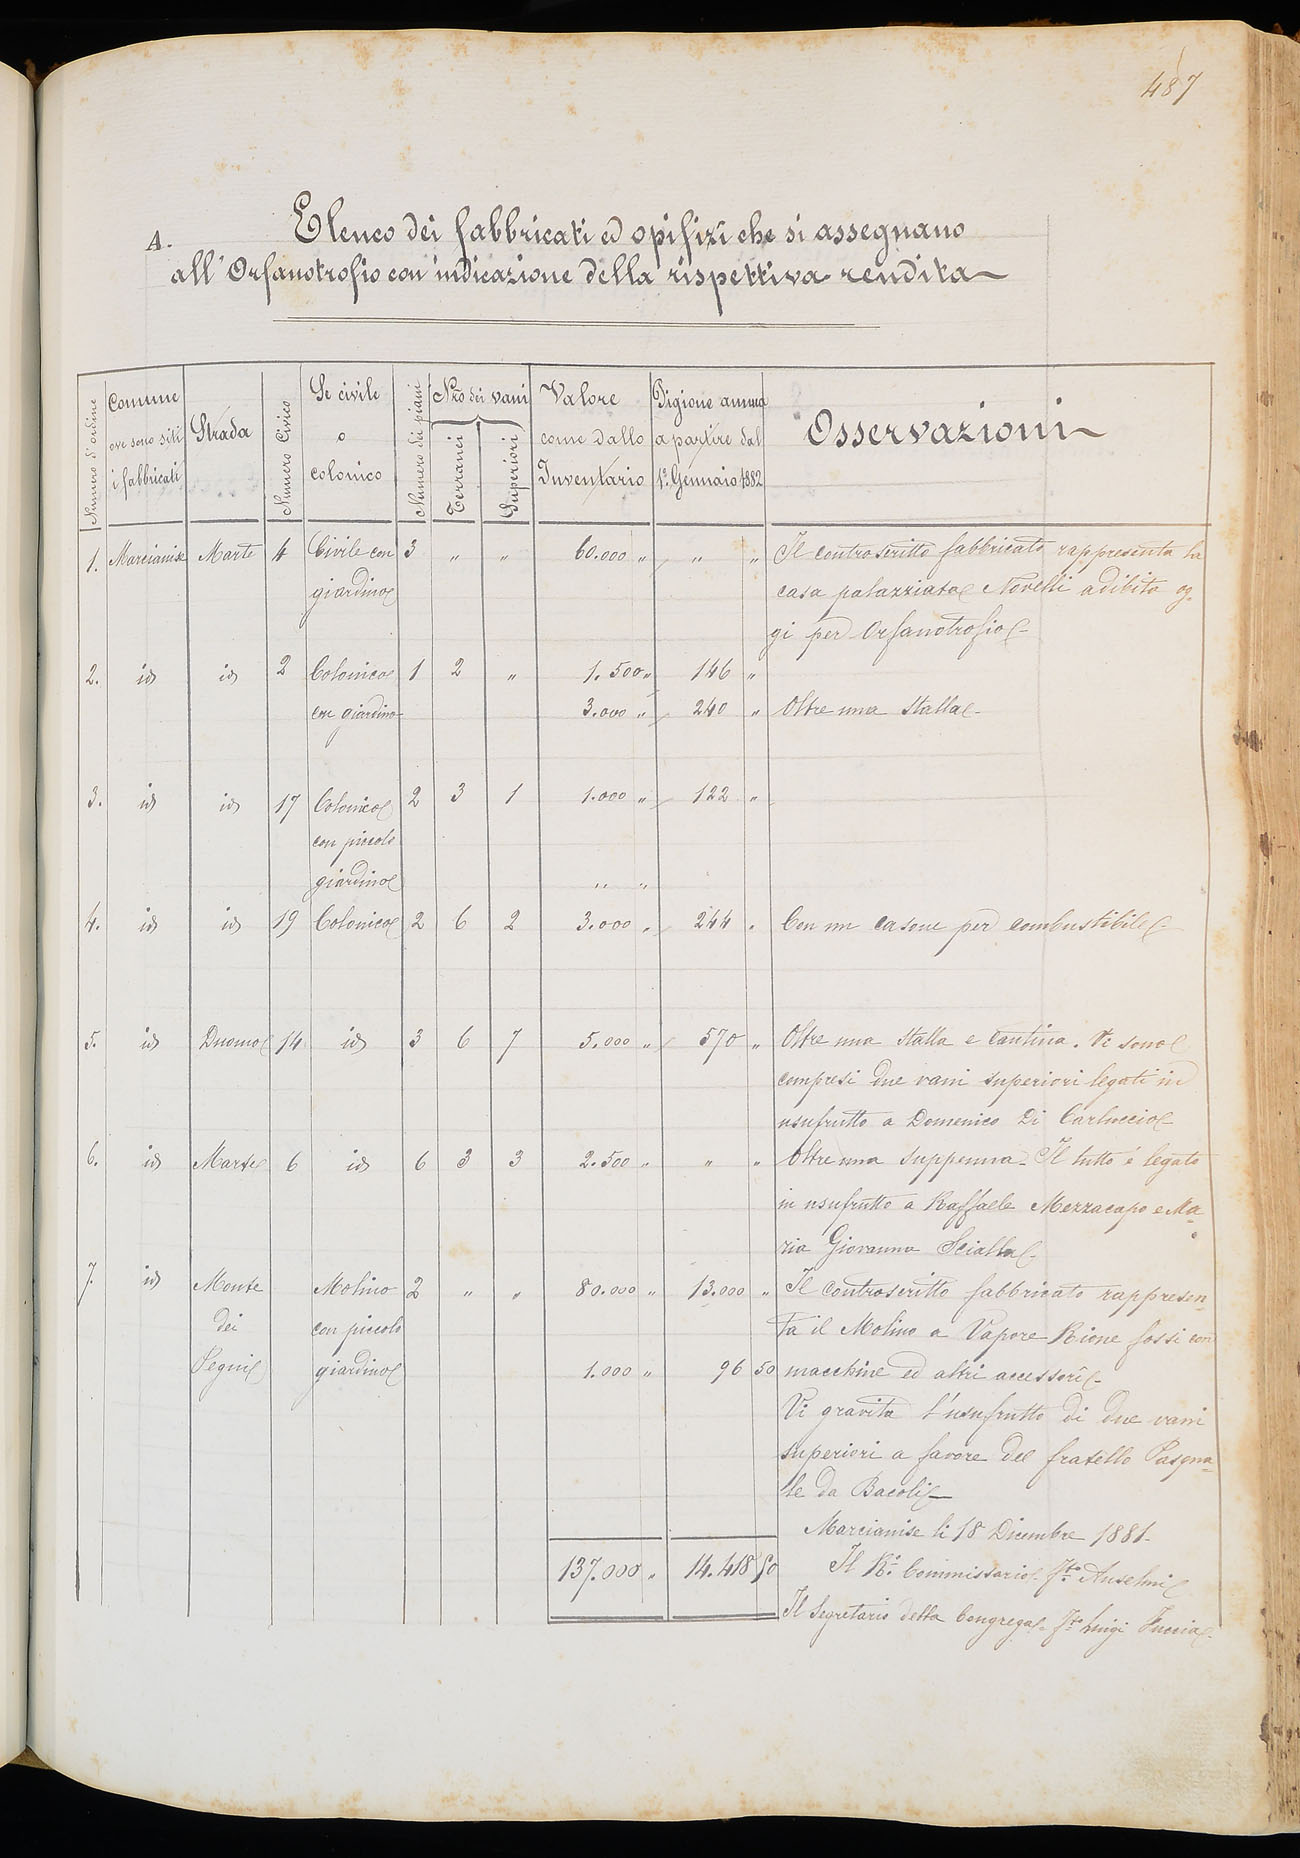 487
A.
Elenco dei fabbricati ed opifizî che si assegnano
all'Orfanotrofio con indicazione della rispettiva rendita
Numero d'ordine
Comune
ove sono siti
i fabbricati
Strada
Numero Civico
Se civile
o
colonico
Numero dei piani
Nro dei vani
Terranei
Superiori
Valore
come dallo
Inventario
Pigione annua
a partire dal
1º Gennaio 1882
Osservazioni
1. Marcianise Marte 4 Civile con 3 " " 60.000 " " " Il controscritto fabbricato rappresenta la
giardino casa palazziata Novelli adibita og-
gi per Orfanotrofio
2. id id 2 Colonico 1 2 " 1.500 " 146 "
con giardino 3.000 " 240 " Oltre una stalla
3. id id 17 Colonico 2 3 1 1.000 " 122 "
con piccolo
giardino " "
4. id id 19 Colonico 2 6 2 3.000 " 244 " Con un casone per combustibile
5. id Duomo 14 id 3 6 7 5.000 " 570 " Oltre una stalla e cantina. Vi sono
compresi due vani superiori legati in
usufrutto a Domenico Di Carluccio
6. id Marte 6 id 6 3 3 2.500 " " " Oltre una suppenna. Il tutto é legato
in usufrutto a Raffaele Mezzacapo e Ma-
ria Giovanna Scialla
7. id Monte Molino 2 " " 80.000 " 13.000 " Il controscritto fabbricato rappresen-
dei con piccolo ta il Molino a Vapore Rione fossi con
Pegni giardino 1.000 " 96 50 macchine ed altri accessorî
Vi gravita l'usufrutto di due vani
superiori a favore del fratello Pasqua-
le da Bacoli
Marcianise li 18 Dicembre 1881.
137.000 " 14.418 50 Il R.º Commissario fto Anselmi
Il Segretario della Congrega fto Luigi